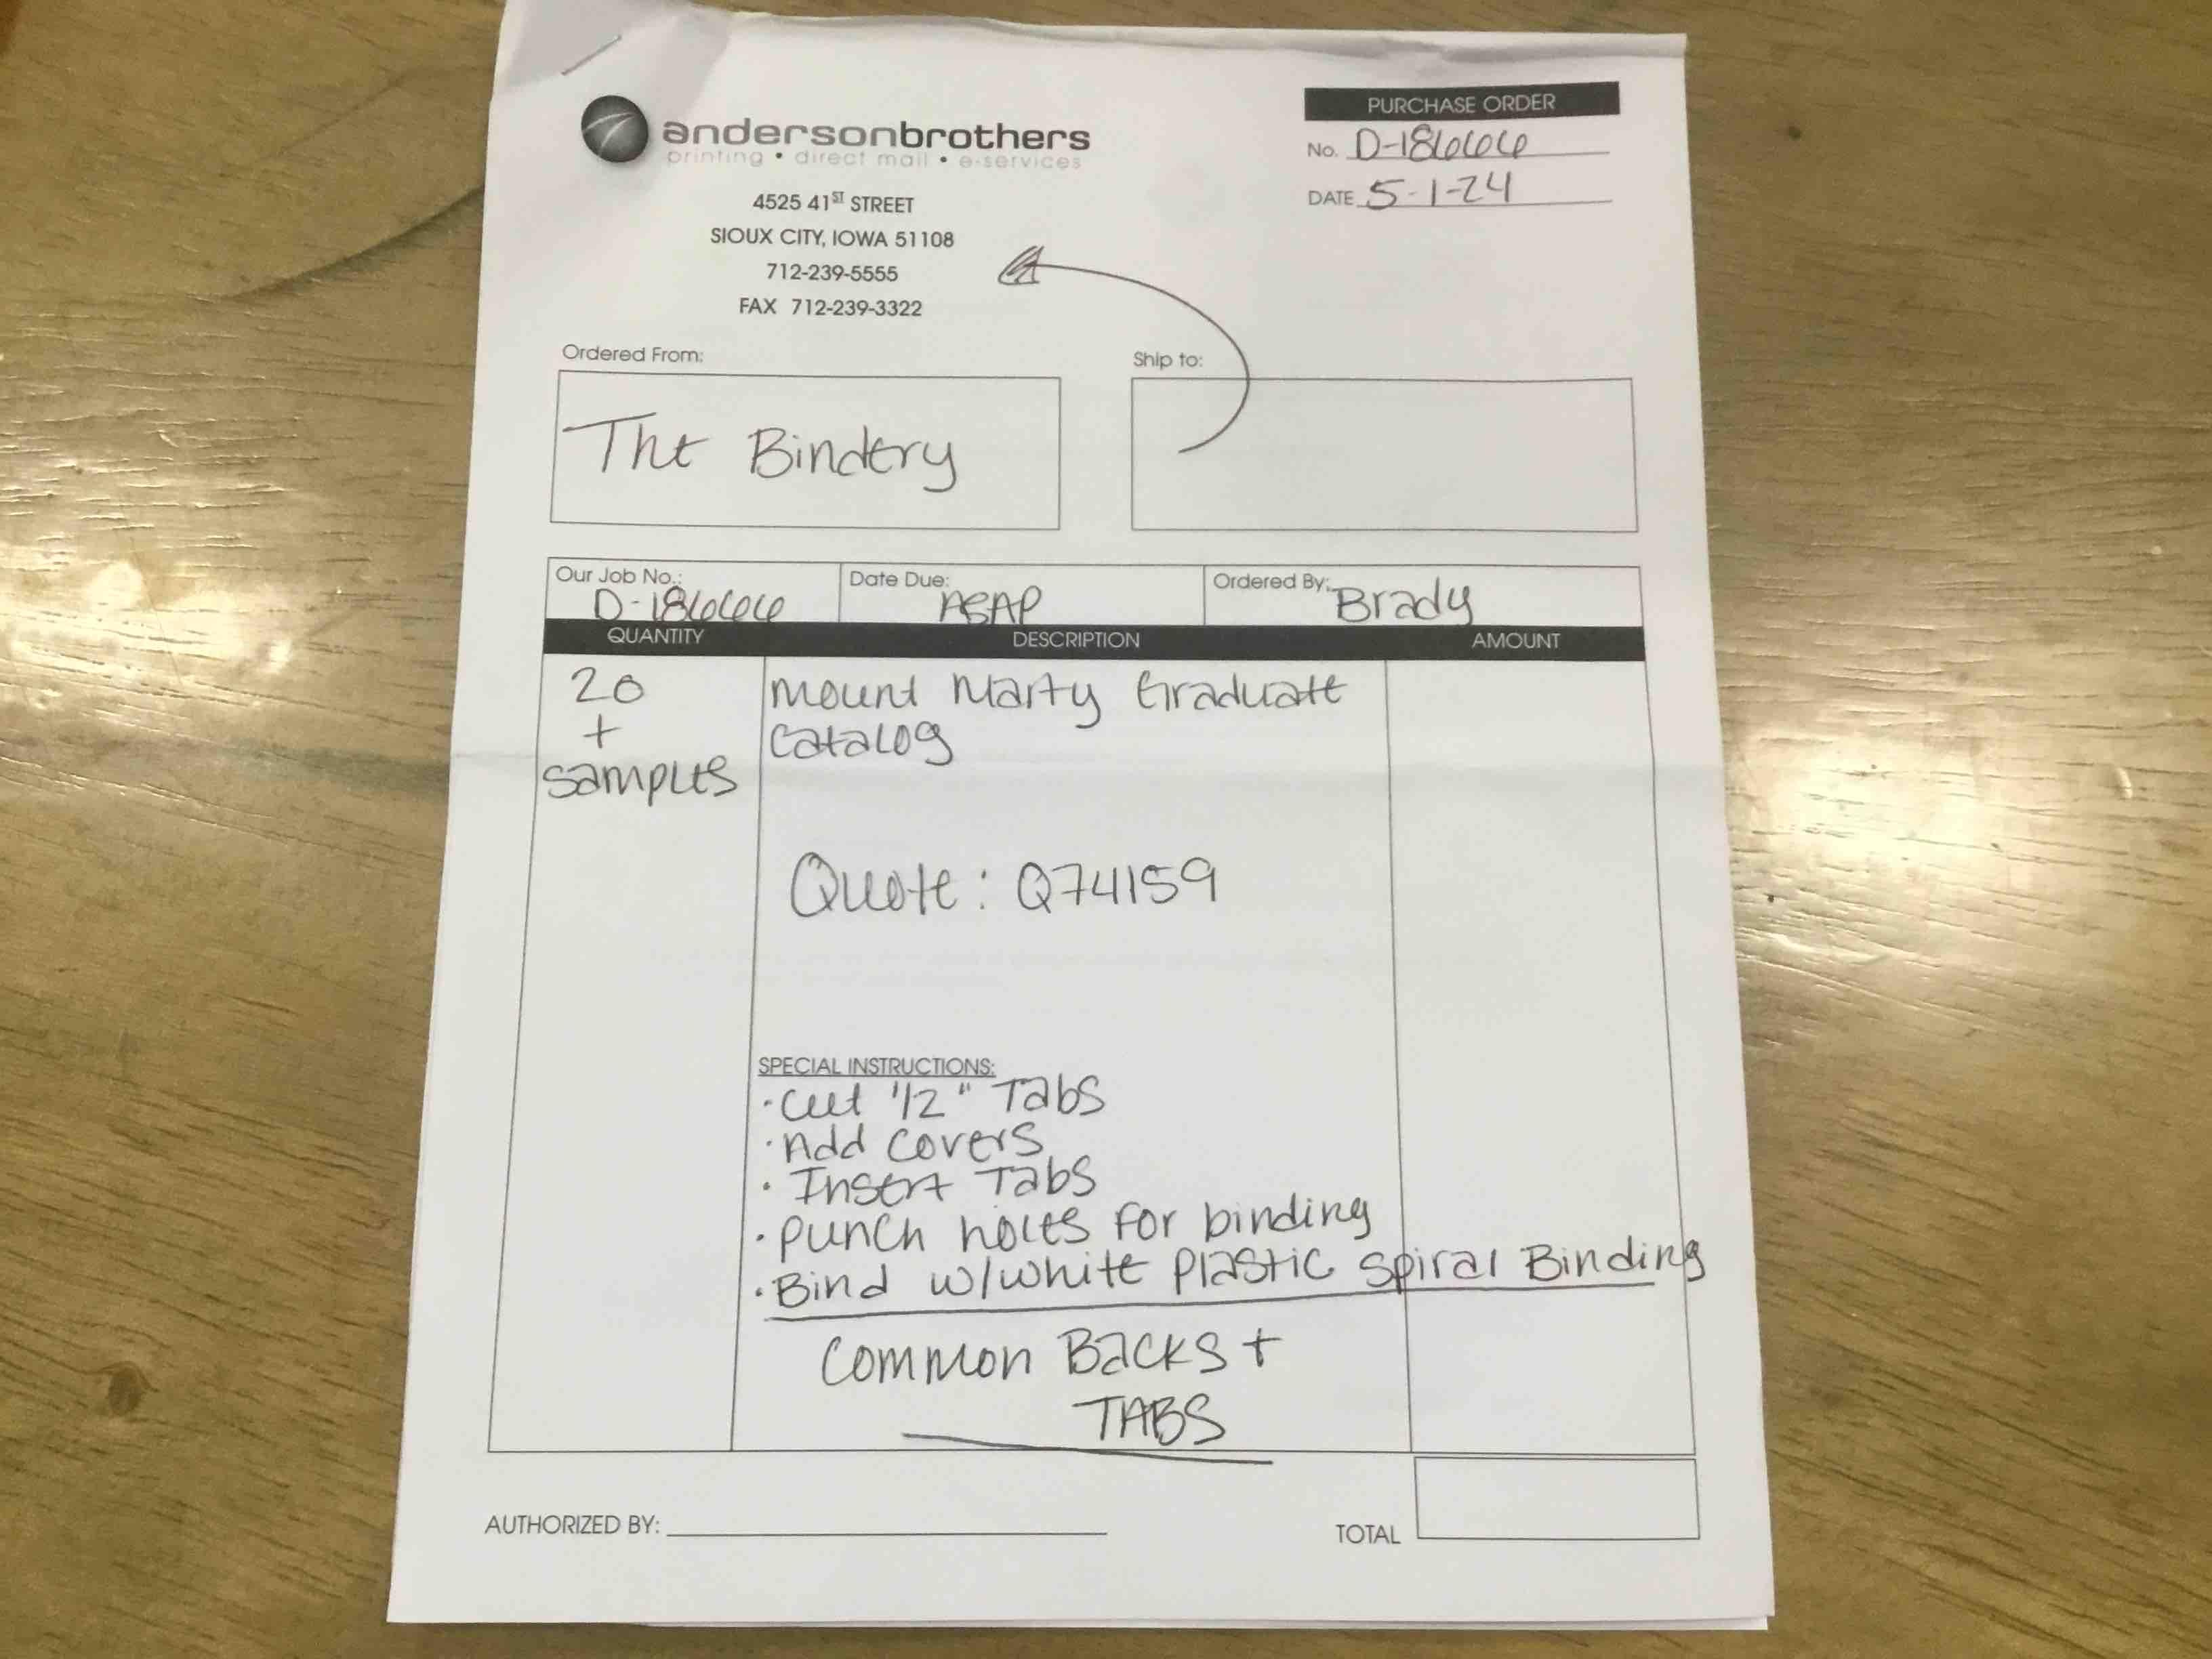 andersonbrothers
printing • direct mail • e-services
4525 41ST STREET
SIOUX CITY, IOWA 51108
712-239-5555
FAX 712-239-3322
PURCHASE ORDER
No. D-186666
DATE 5-1-24
Ordered From:
The Bindery
Ship to:
Our Job No.: D-186666
Date Due: ASAP
Ordered By: Brady
QUANTITY DESCRIPTION AMOUNT
20 Mount Marty Graduate
+ Catalog
samples
Quote: Q74159
SPECIAL INSTRUCTIONS:
· Cut 1/2" Tabs
· Add Covers
· Insert Tabs
· Punch holes for binding
· Bind w/white Plastic Spiral Binding
Common Backs +
TABS
AUTHORIZED BY:
TOTAL